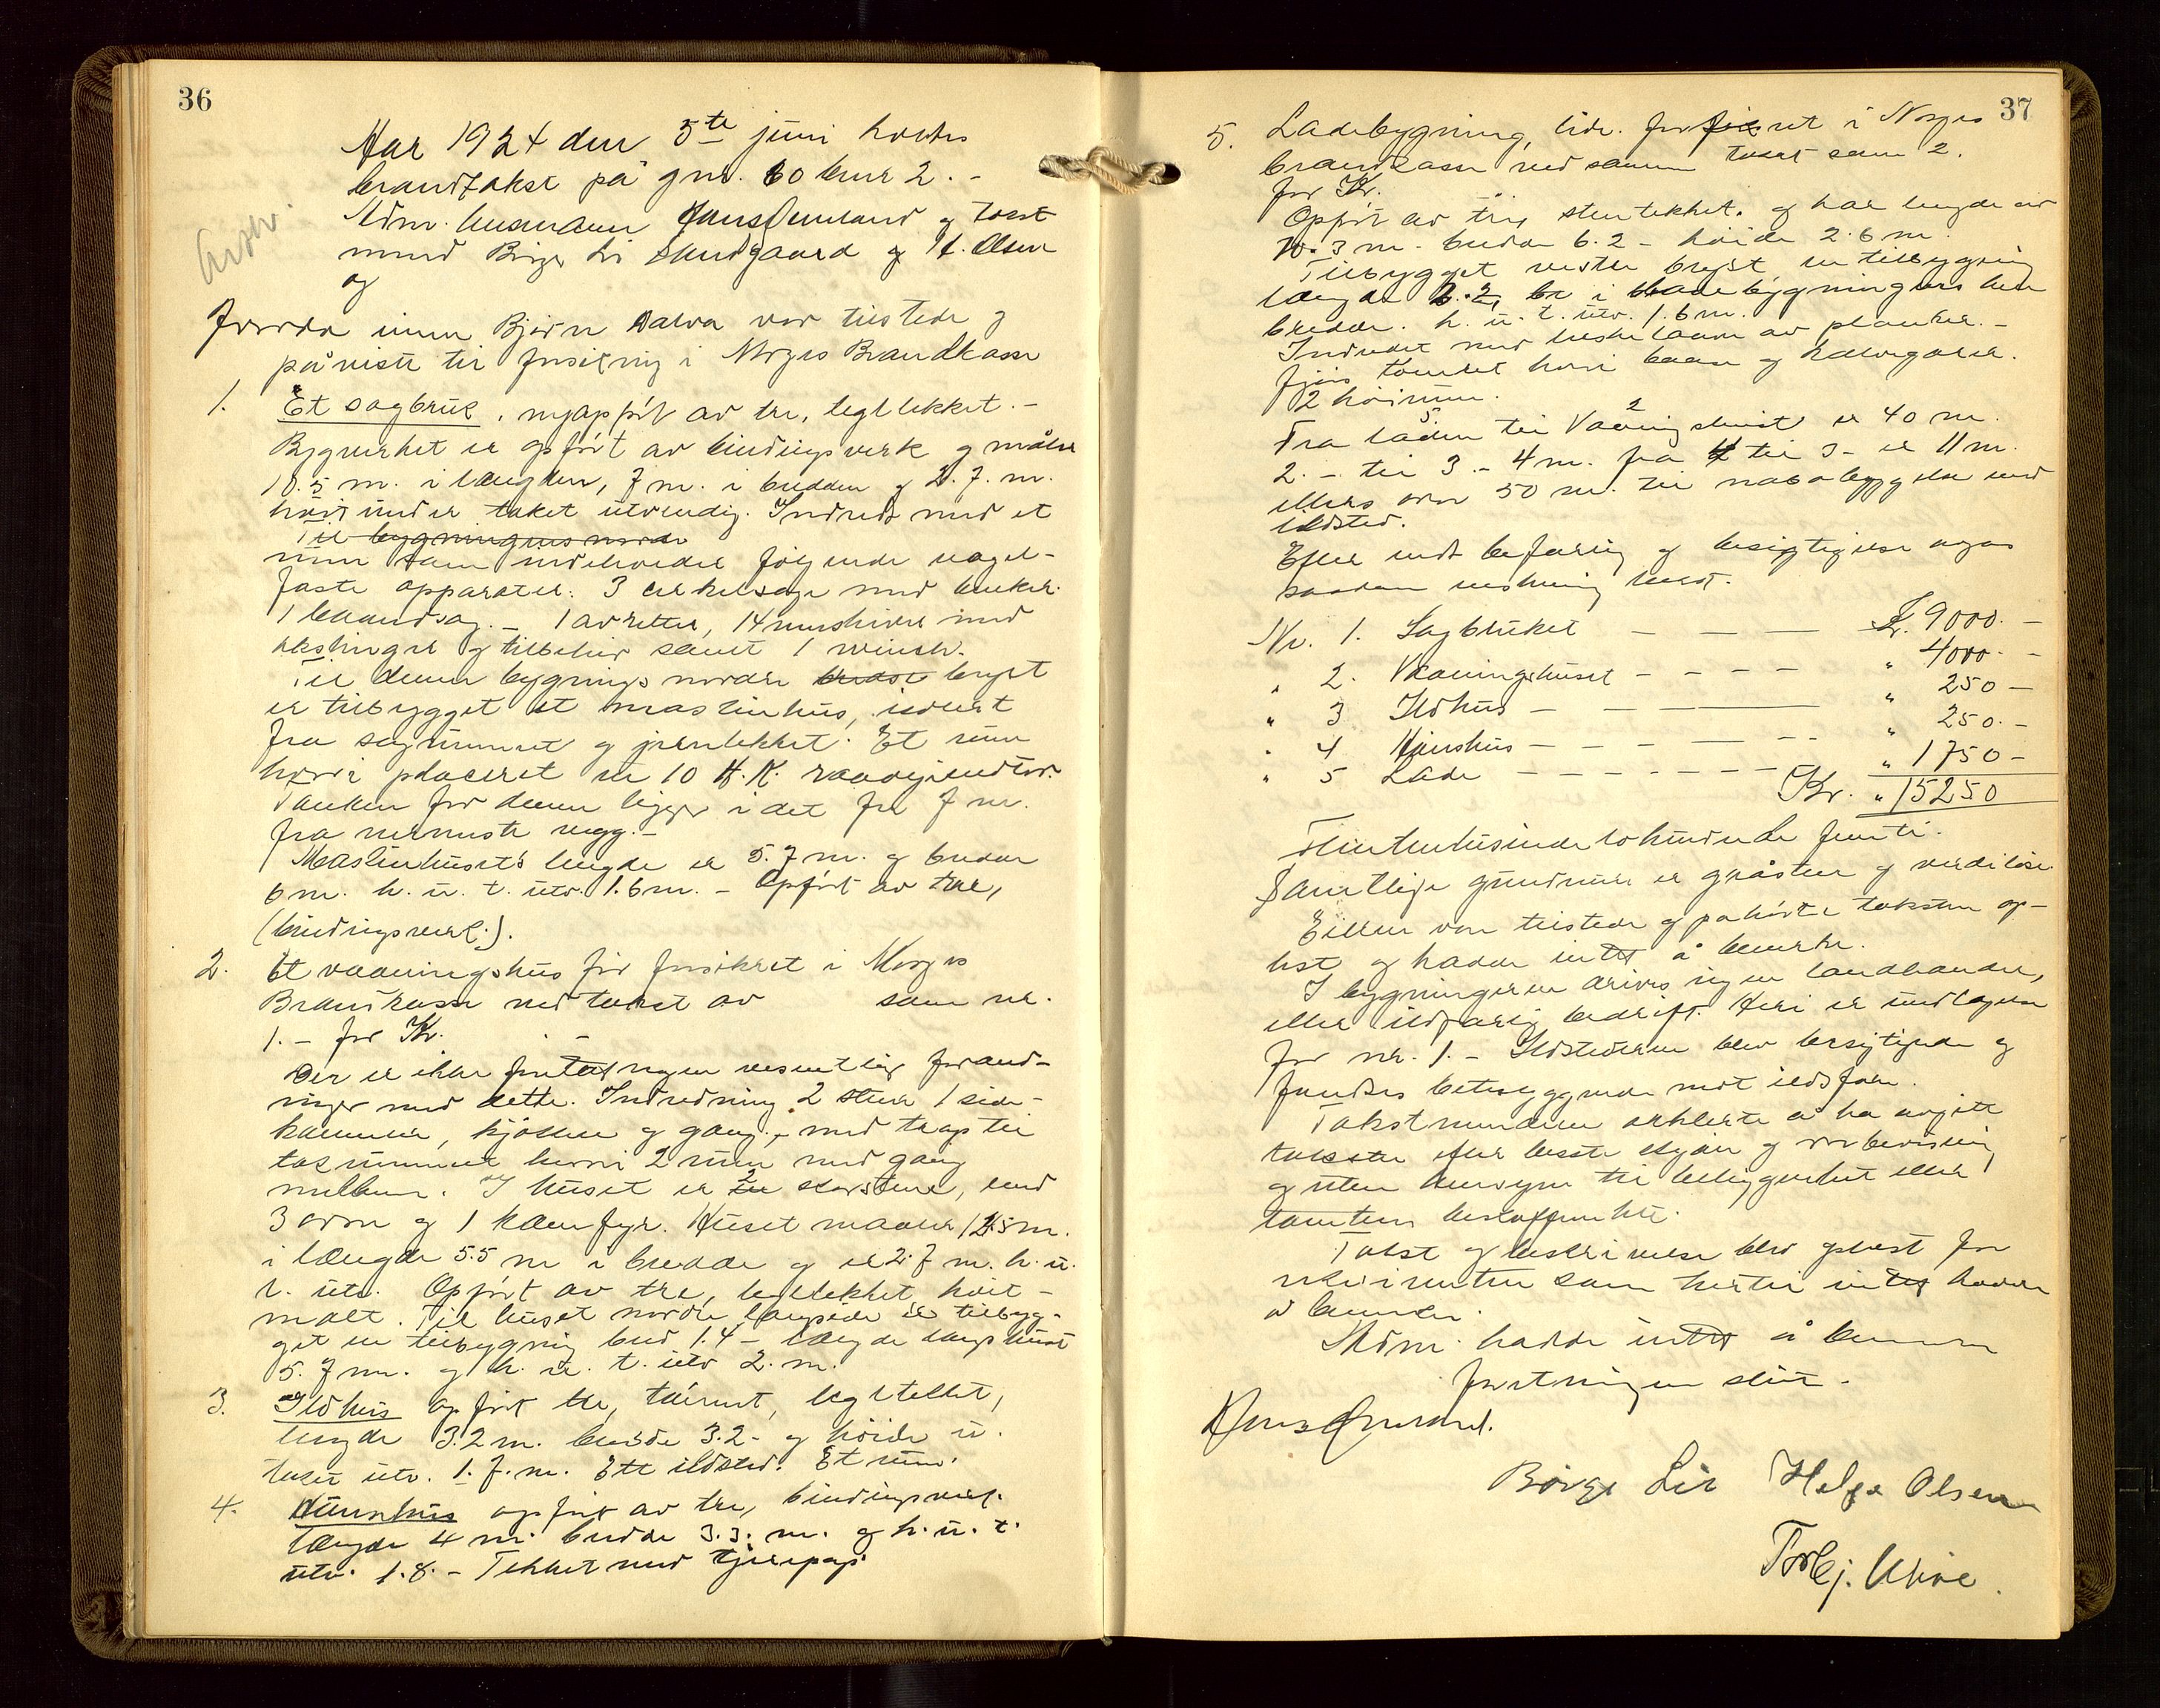 36
Aar 1924 den 5te juni holdtes
brandtakst på gnr. 60 bnr 2. -
Adm. lensmann og takst
mend Børge Li og H. Olsen
og
Avskr.
Bjørn var tilstede og
påviste til forsikring i Norges Brandkasse
1. Et sagbruk, nyopført av tre, tegltekket. -
Bygverket er opført av bindingsverk og måler
10.5 m. i længden, 7 m. i bredden og 2.7. m.
høit under taket utvendig. Indredt med et
Til bygningens nordre
rum som indeholder følgende nagel-
faste apparater: 3 cirkelsage med benker.
1 baandsag. - 1 avretter, 14 remskiver med
akslinger og tilbehør samt 1 winsh.
Til denne bygnings nordre bredde bryst
er tilbygget et maskinhus, isolert
fra sagrummet og jerntekket. Et rum
hvori placeret en 10 H.K. raaoljemotor.
Tanken for denne ligger i det fri 7 m.
fra nermeste vegg. -
Maskinhuset's lengde er 5.7 m. og bredde
6 m. h. u. t. utv. 1.6 m. - Opført av tre,
(bindingsverk.).
2. Et vaaningshus før forsikret i Norges
Brandkasse ved takst av som nr.
1. - for Kr.
Der er ikke foretat nogen vesentlig forand-
ringer med dette. Indredning 2 stuer 1 side-
kammer, kjøkken og gang, med trap til
takrummet hvori 2 rum med gang
mellem. I huset er 2 skorstene, med
3 ovne og 1 komfyr. Huset maaler 12.5 m.
i længde 5.5 m i bredde og er 2.7 m. h. u.
t. utv. Opført av tre, tegltekket hvit-
malt. Til huset nordre langside er tilbyg-
get en tilbygning bred 1.4 - længde langs huset
5.7 m. og h. u. t. utv 2. m.
3. Ildhus opført tre, tømret, tegltekket,
lengde 3.2 m. bredde 3.2 - og høide u.
taket utv. 1.7. m. Ett ildsted. Et rum.
4. Hønsehus opført av tre, bindingsverk.
længde 4 m. bredde 3.3. m. og h. u. t.
utv. 1.8. - Tekket med tjærepap.
37
5. Ladebygning, tidl. forsikret i Norges
brandkasse ved samme takst som 2.
for Kr.
Opført av tre, stentekket. og har lengde av
10.3 m. bredde 6.2 - høide 2.6 m.
Tilbygget vestre bryst, en tilbygning
længde 2.2, br i ladebygningens hele
bredde. h. u. t. utv. 1.6 m.
Indredet med treskelaave av planker. -
fjøs tømret hvori baase og kalvegarde.
2 høirum.
Fra laden 5 til Vaaningshuset 2 er 40 m.
2. - til 3. - 4 m. fra 4 til 3 - er 11 m.
ellers over 50 m. til nabobebyggelse med
ildsted.
Efter endt befaring og besigtigelse avgav
saadan verdsetting
Nr. 1. Sagbruket — — — Kr. 9000. —
" 2. Vaaningshuset - - - - " 4000. -
" 3 Ildhus — — " 250 —
" 4 Hønshus — - - - — " 250. —
" 5 Lade - - - - - - " 1750 —
Kr. " 15250
Femtentusindetohundrede femti.
Samtlige grundmure er gråsten og verdiløse
Eieren var tilstede og påhørte taksten op-
lest og hadde intet å bemerke.
I bygningerne drives ingen landhandel,
eller ildfarlig bedrift. Heri er undtagelse
for nr. 1. - Ildstederne blev besigtiget og
fandtes betryggende mot ildsfare.
Takstmendene erklerte å ha avgitt
taksten efter beste skjøn og overbevisning
og uten hensyn til beliggenhet eller
tomtens beskaffenhet.
Takst og beskrivelse blev oplest for
rekvirenten som hertil intet hadde
å bemerke.
Adm. hadde intet å bemerke
forretningen slut.
Børge Lie Helge Olsen
Torbj.